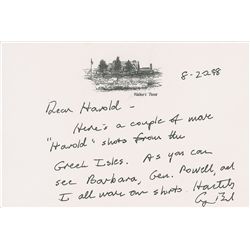 Walker's Point
8-2-98
Dear Harold -
Here's a couple of more
"Harold" shots from the
Greek Isles. As you can
see Barbara, Gen. Powell, and
I all wore our shirts.